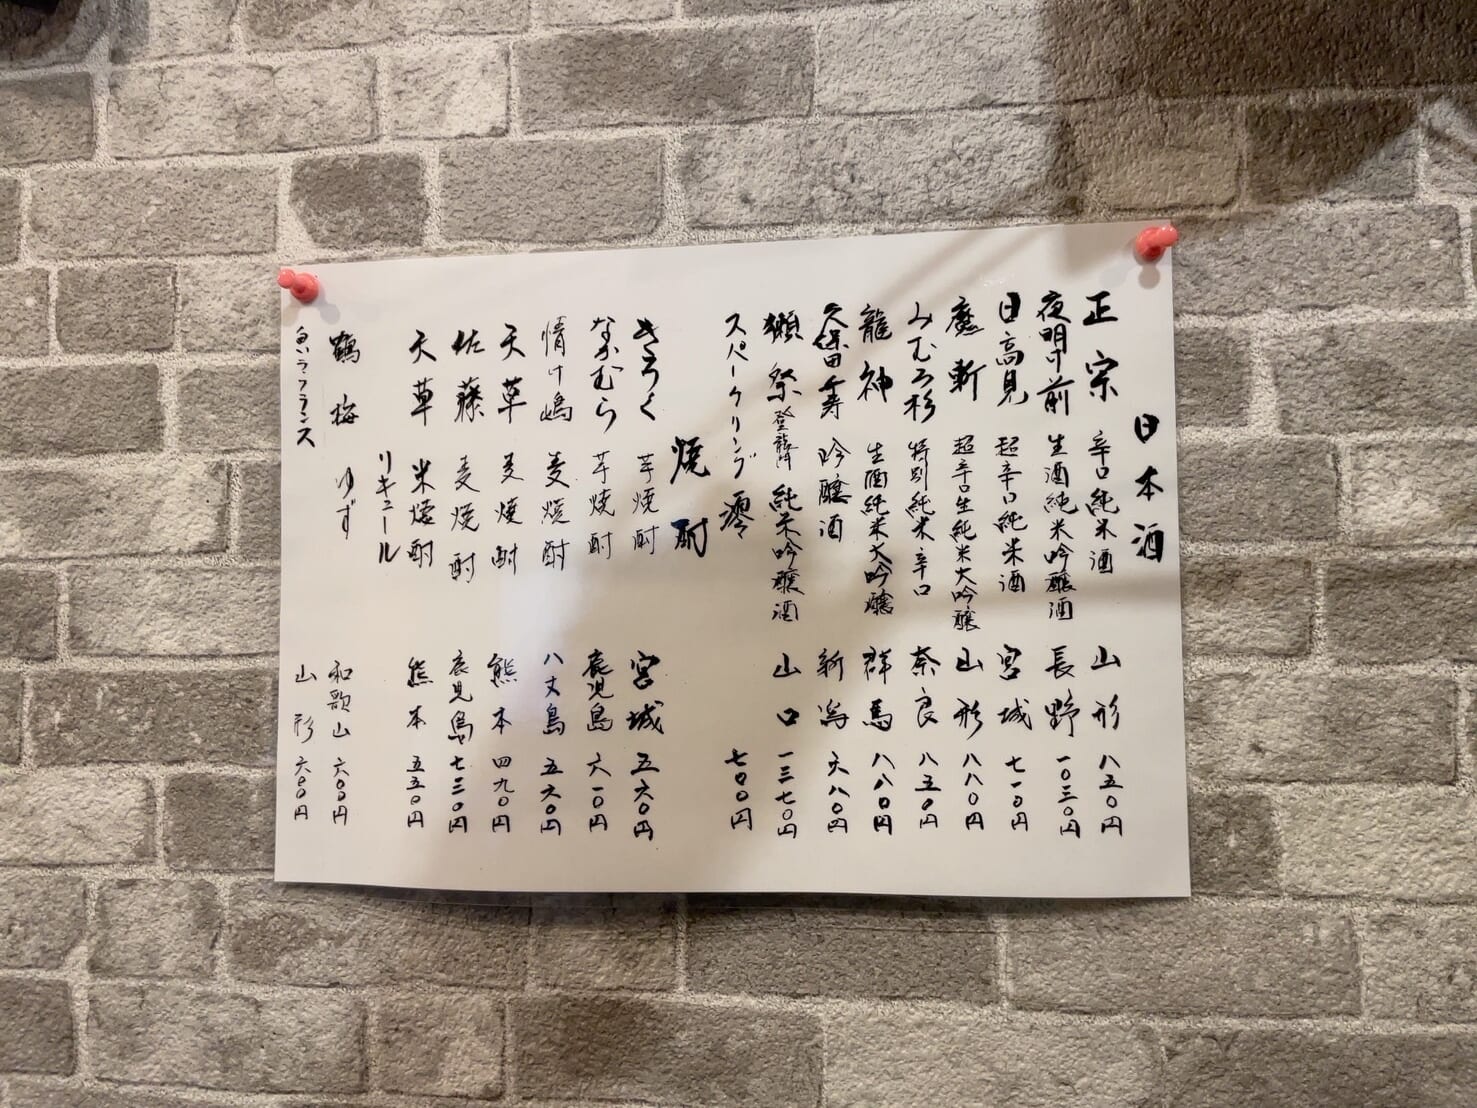 日本酒
正宗 辛口純米酒 山形 八五〇円
夜明け前 生酒純米吟醸酒 長野 一〇三〇円
日高見 超辛口純米酒 宮城 七一〇円
魔斬 超辛口生純米大吟醸 山形 八八〇円
みむろ杉 特別純米辛口 奈良 八五〇円
龍神 生酒純米大吟醸 群馬 八八〇円
久保田千寿 吟醸酒 新潟 六八〇円
獺祭 登龍門 純米吟醸酒 山口 一三七〇円
スパークリング 澪 七〇〇円
焼酎
きろく 芋焼酎 宮城 五六〇円
なかむら 芋焼酎 鹿児島 六一〇円
情け嶋 麦焼酎 八丈島 五六〇円
天草 麦焼酎 熊本 四九〇円
佐藤 麦焼酎 鹿児島 七三〇円
天草 米焼酎 熊本 五五〇円
リキュール
鶴梅 ゆず 和歌山 六〇〇円
ラフランス 山形 六〇〇円